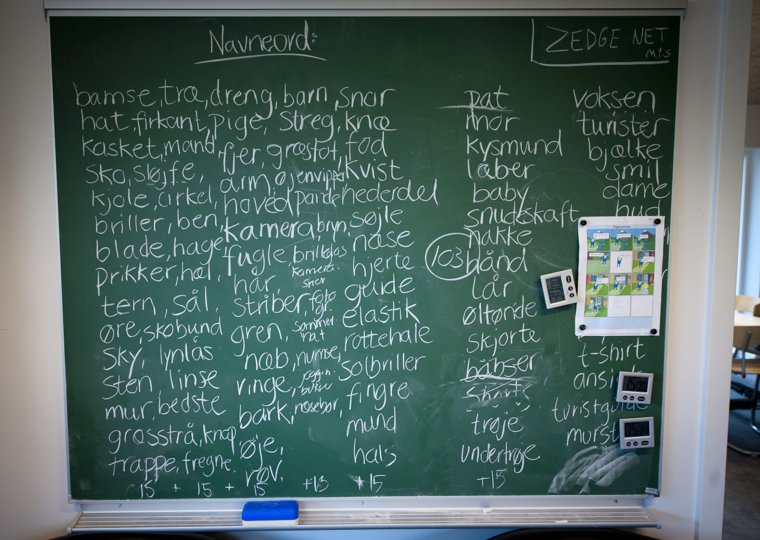 Navneord:
ZEDGE NET
bamse, træ, dreng, barn, snor
hat, firkant, pige, streg, knæ
kasket, mand, fjer, græstot, fod
sko, sløjfe, arm, øjenvipper, kvist
kjole, cirkel, hoved, pande, hederdel
briller, ben, kamera, bryn, søjle
blade, hage, fugle, brilleglas, næse
prikker, hæl, hår, kamera-snor, hjerte
tern, sål, striber, guide
øre, skobånd, gren, sommer, elastik
sky, lynlås, næb, numse, rottehale
sten, linse, ringe, bukser, solbriller
mur, bedste, bark, næsebor, fingre
græsstrå, knap, øje, mund
trappe, fregne, røv, hals
15 + 15 + 15 +13 +15
pat
mor
kysmund
læber
baby
snudeskaft
nakke
103
hånd
lår
øltønde
skjorte
bukser
shorts
trøje
undertrøje
+15
voksen
turister
bjælke
smil
dame
hud
t-shirt
turistguide